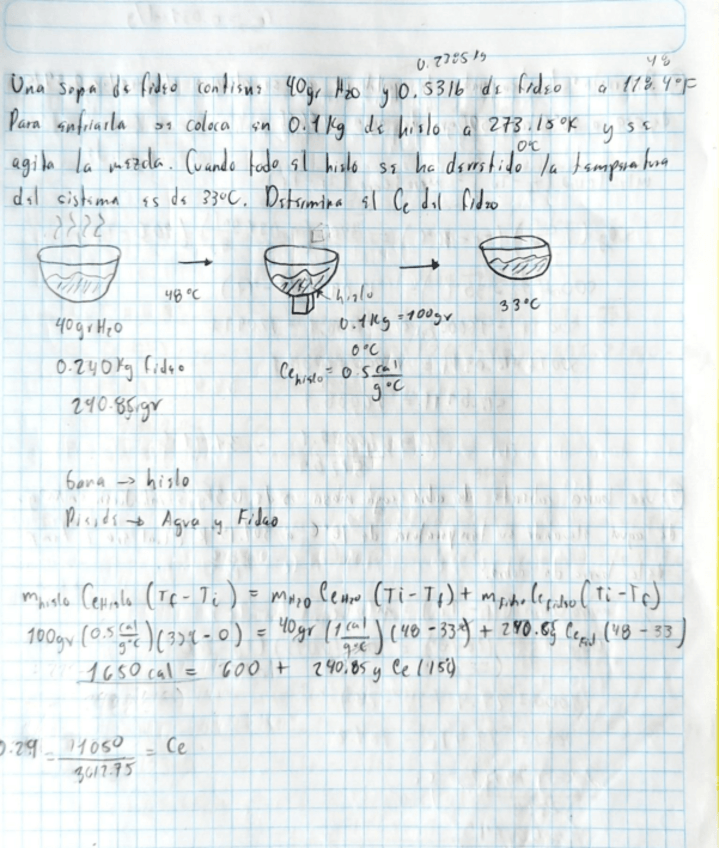 0.2405 kg 48
Una sopa de fideo contiene 40gr H20 y 0.531b de fideo a 118.4°F
Para enfriarla se coloca en 0.1kg de hielo a 273.15°K y se
0°C
agita la mezcla. Cuando todo el hielo se ha derretido la temperatura
del sistema es de 33°C. Determina el Ce del fideo
48°C
hielo
33°C
40gr H2O
0.1kg = 100gr
0°C
0.240kg fideo
Cehielo = 0.5 cal/g°C
240.85gr
Gana → hielo
Pierde → Agua y Fideo
mhielo CeHielo (Tf - Ti) = mH20 CeH20 (Ti - Tf) + mfideo Cefideo (Ti - Tf)
100gr (0.5 cal/g°C)(33°C - 0) = 40gr (1 cal/g°C)(48 - 33°) + 240.85 Cefid (48 - 33)
1650 cal = 600 + 240.85g Ce (15°)
0.29 = 1050/3612.75 = Ce